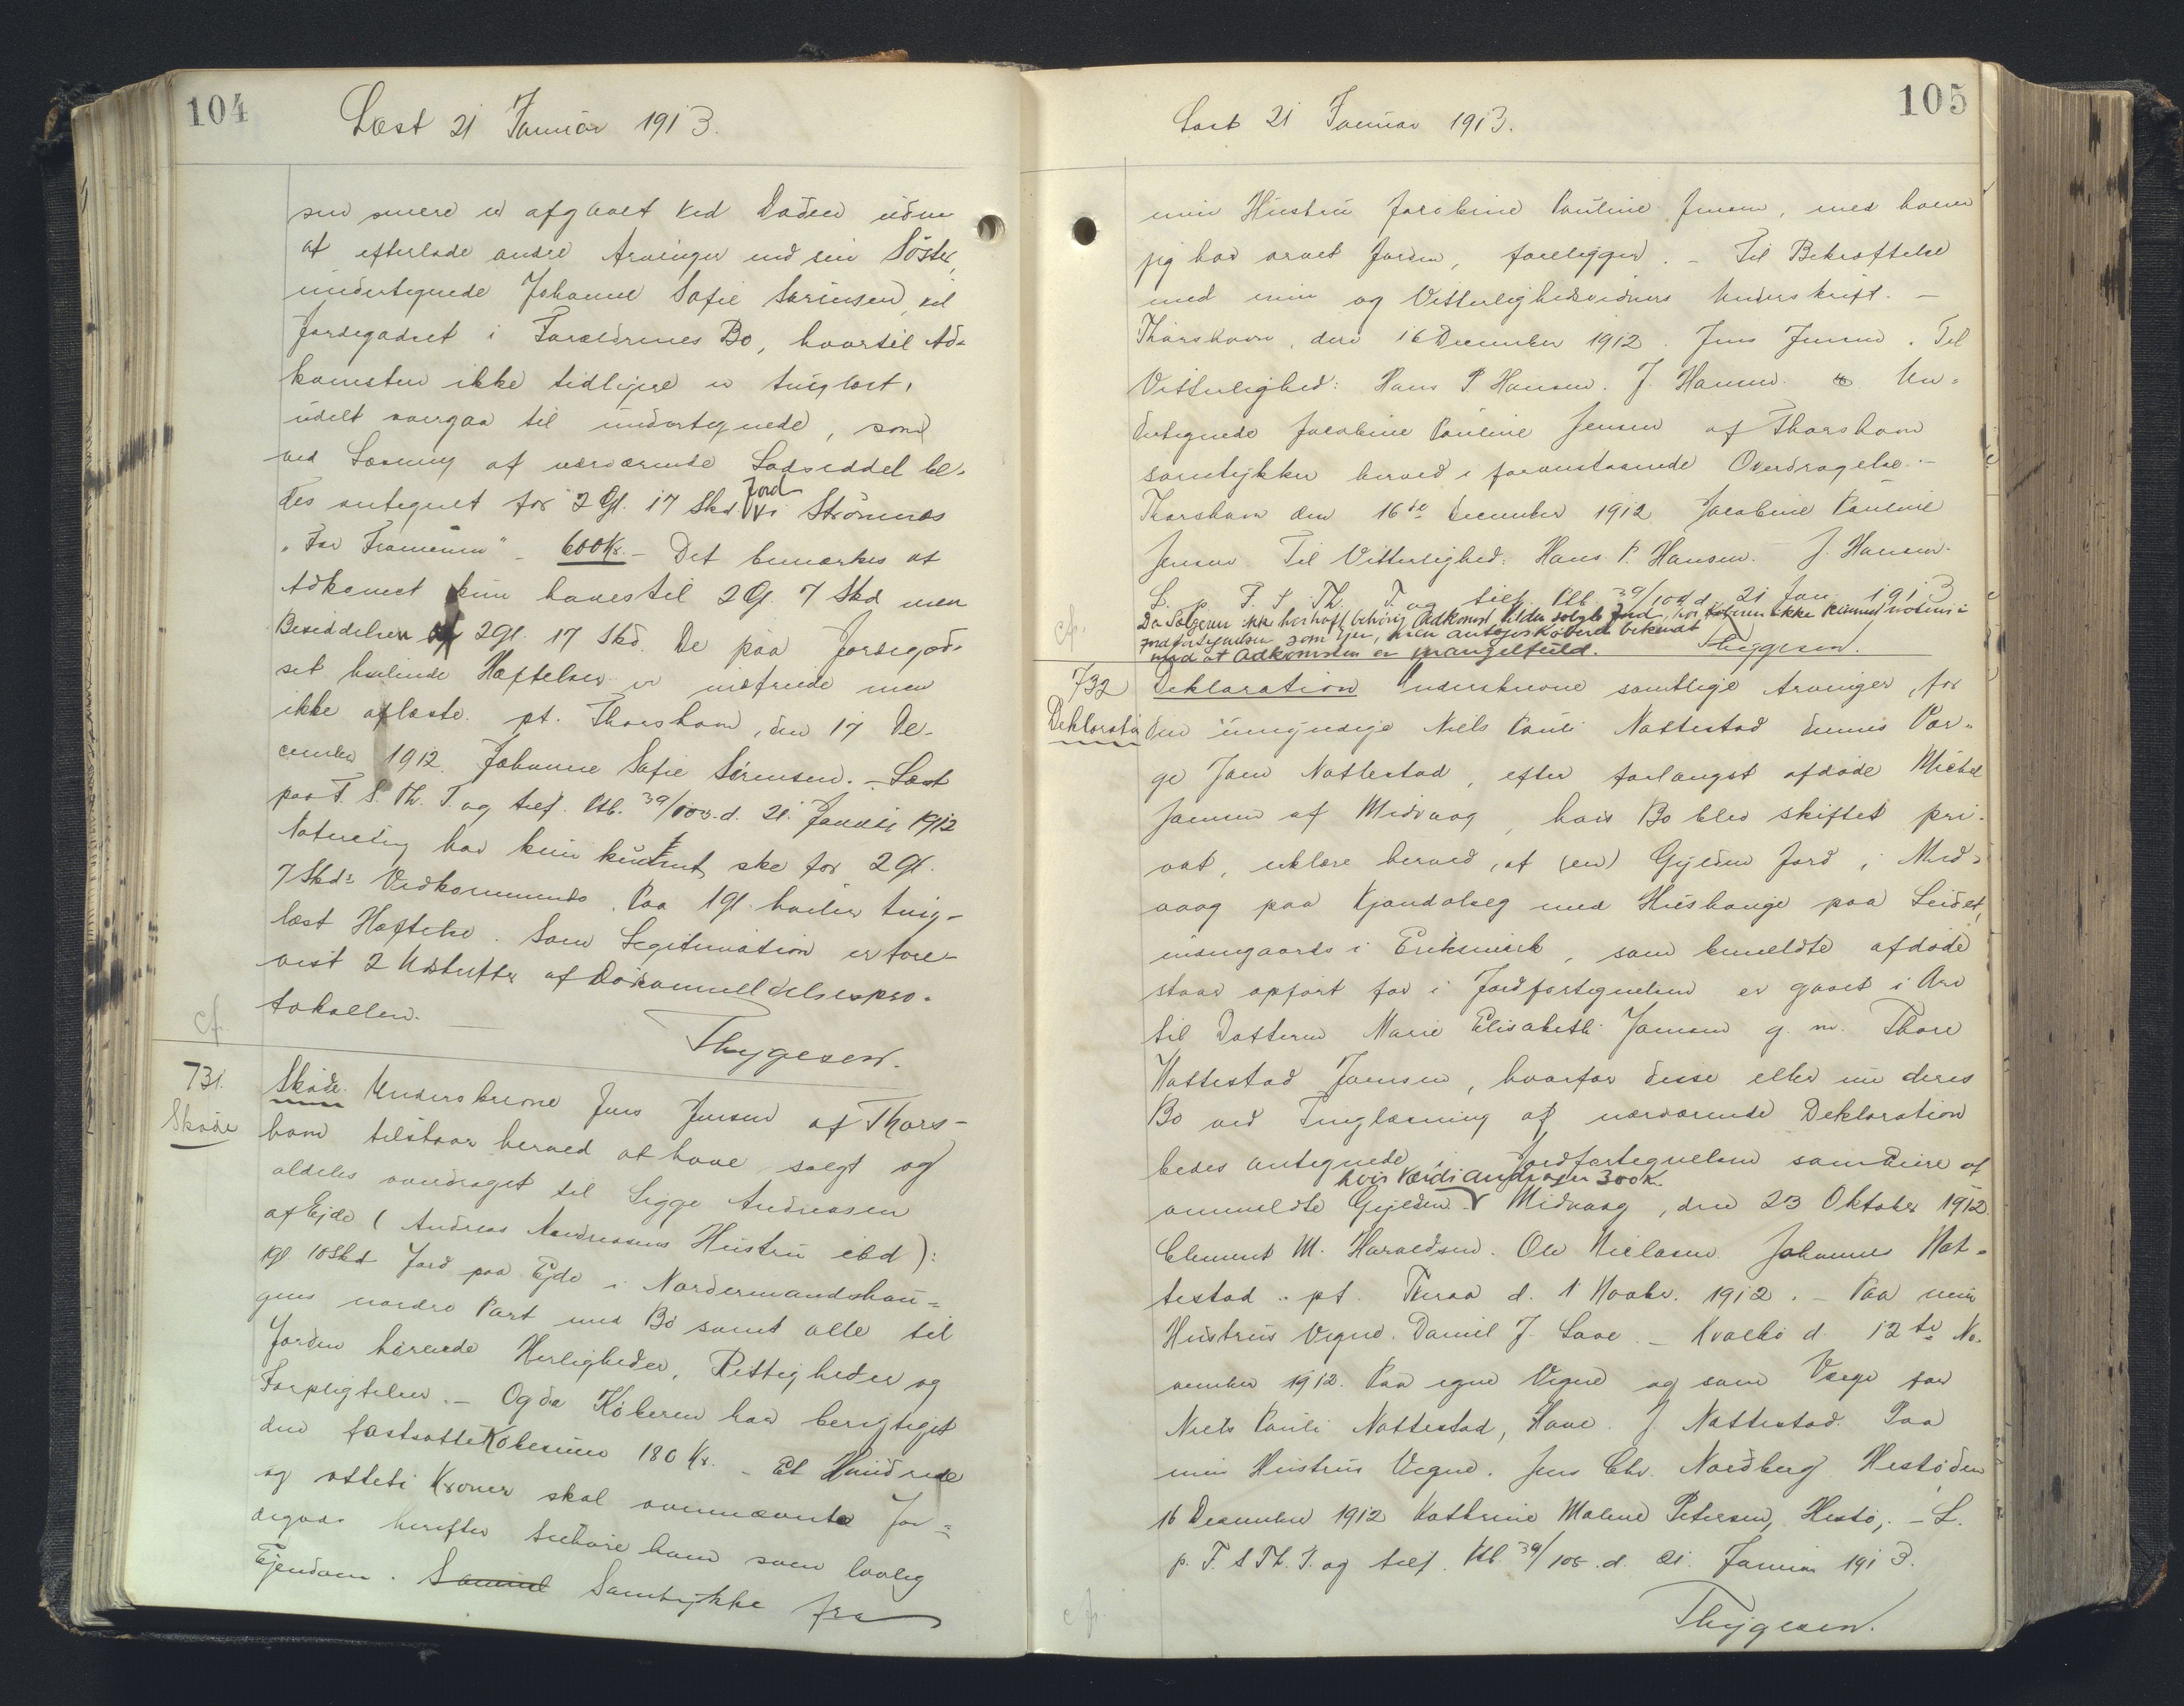 104
Læst 21 Januar 1913.
som senere er afgaaet ved Døden uden
at efterlade andre Arvinger end sin Søster,
undertegnede Johanne Sofie Sørensen, vil
Jordegodset i Forældrenes Bo, hvortil Ad=
komsten ikke tidligere er tinglæst,
udelt overgaa til undertegnede, som
ved Læsning af nærværende Lodseddel be=
des antegnet for 2 Gl. 17 Skd Jord i Strømnæs
"Før Framman" - 600 Kr. - Det bemærkes at
Adkomst kun haves til 2 Gl. 7 Skd men
Besiddelsen af 2 Gl. 17 Skd. De paa Jordegod=
set hvilende Hæftelser er indfriede men
ikke aflæste. pt. Thorshavn, den 17 De-
cember 1912. Johanne Sofie Sørensen. - Læst
paa F. S. Th. T. og tilf. Ktb. 39/103. d. 21. Januar 1912
Notering har kun kunnet ske for 2 Gl.
7 Skd's Vedkommende. Paa 1 Gl. hviler ting-
læst Hæftelse. Som Legitimation er fore-
vist 2 Udskrifter af Dødsanmeldelsespro-
tokollen.
cf.
Thygesen.
731.
Skøde
Skøde. Underskrevne Jens Jensen af Thors-
havn tilstaar herved at have solgt og
aldeles overdraget til Sigge Andreasen
af Ejde (Andreas Andreasens Hustru ibd):
1 gl 10 Skd Jord paa Ejde i Nordermandshau=
gens nordre Part med Bø samt alle til
Jorden hørende Herligheder, Rettigheder og
Forpligtelser. - Og da Køberen har berigtiget
den fastsatte Købesum 180 Kr. - Et Hundrede
og otteti Kroner skal ovennævnte Jor=
degods herefter tilhøre ham som lovlig
Ejendom. Samtykke fra
105
Læst 21 Januar 1913.
min Hustru Jacobine Pauline Jensen, med hvem
jeg har arvet Jorden, foreligger. - Til Bekræftelse
med min og Vitterlighedsvidners Underskrift. -
Thorshavn, den 16 December 1912. Jens Jensen. Til
Vitterlighed: Hans P Hansen. J. Hansen. Un=
dertegnede Jacobine Pauline Jensen af Thorshavn
samtykker herved i foranstaaende Overdragelse. -
Thorshavn den 16de December 1912 Jacobine Pauline
Jensen. Til Vitterlighed: Hans P. Hansen. J. Hansen.
L. p. F. S. Th. T. og tilf. Ktb. 39/104 d. 21 Jan. 1913
Da Sælgeren ikke har haft behørig Adkomst til den solgte Jord, har Køberen ikke kunnet noteres i
Jordfortegnelsen som Ejer, men antages Køberen bekendt
med at Adkomsten er mangelfuld. Thygesen.
cf.
732
Deklaration
Deklaration Underskrevne samtlige Arvinger, for
den umyndige Niels Pauli Nattestad dennes Vær=
ge Joen Nattestad, efter forlængst afdøde Michel
Joensen af Midvaag, hvis Bo blev skiftet pri-
vat, erklære herved, at (en) Gylden Jord i Mid=
vaag paa Kjondalseg med Hushauge paa Leidet,
indengaards i Eriksmark, som bemeldte afdøde
staar opført for i Jordfortegnelsen er gaaet i Arv
til Datteren Marie Elisabeth Joensen g. m. Thore
Nattestad Joensen, hvorfor disse eller nu deres
Bo ved Tinglæsning af nærværende Deklaration
bedes antegnede i Jordfortegnelsen som Eiere af
hvis Værdi andrager 300 Kr.
ommeldte Gylden. Midvaag, den 23 Oktober 1912.
Clement M. Haraldsen. Ole Nielsen. Johannes Nat=
testad. pt. Tveraa d. 1 Novbr. 1912. - Paa min
Hustrus Vegne. Daniel J. Save. - Kvalbø d. 12te No-
vember 1912. Paa egne Vegne og som Værge for
Niels Pauli Nattestad, Hove. J. Nattestad. Paa
min Hustrus Vegne. Jens Chr. Nordberg Hestø den
16 December 1912 Kathrine Malene Petersen, Hestø, - L.
p. F. S Th. T. og tilf. Ktb. 39/105. d. 21. Januar 1913.
cf.
Thygesen.